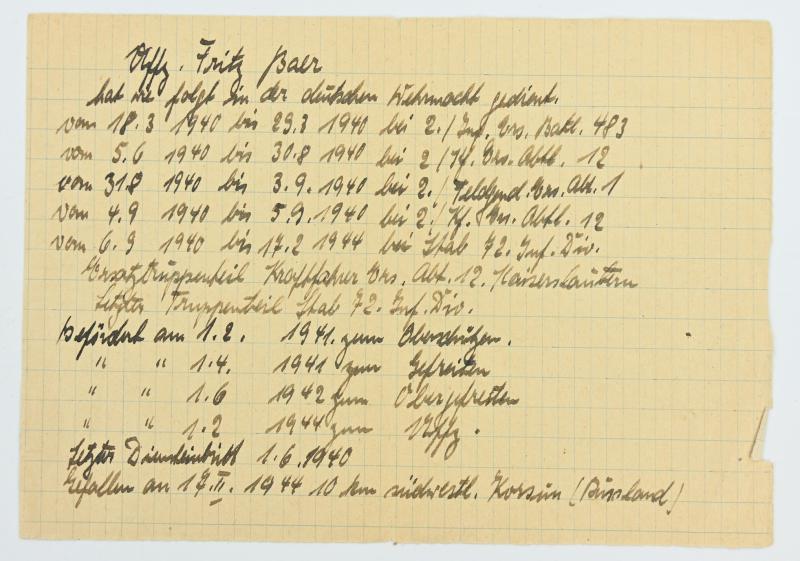 Uffz. Fritz Baer
hat wie folgt in der deutschen Wehrmacht gedient.
vom 18.3 1940 bis 29.3 1940 bei 2./Inf. Ers. Batl. 483
vom 5.6 1940 bis 30.8 1940 bei 2/Kf. Ers. Abtl. 12
vom 31.8 1940 bis 3.9.1940 bei 2./Feldgend. Ers. Abt. 1
vom 4.9 1940 bis 5.9.1940 bei 2./Kf. Ers. Abtl. 12
vom 6.9 1940 bis 17.2 1944 bei Stab 72. Inf. Div.
Ersatztruppenteil Kraftfahrer Ers. Abt. 12. Kaiserslautern
Letzter Truppenteil Stab 72. Inf. Div.
Befördert am 1.2. 1941 zum Oberschützen.
" " 1.4. 1941 zum Gefreiten
" " 1.6 1942 zum Obergefreiten
" " 1.2 1944 zum Uffz.
Letzter Diensteintritt 1.6.1940
Gefallen am 17.II. 1944 10 km südwestl. Korsun (Russland)